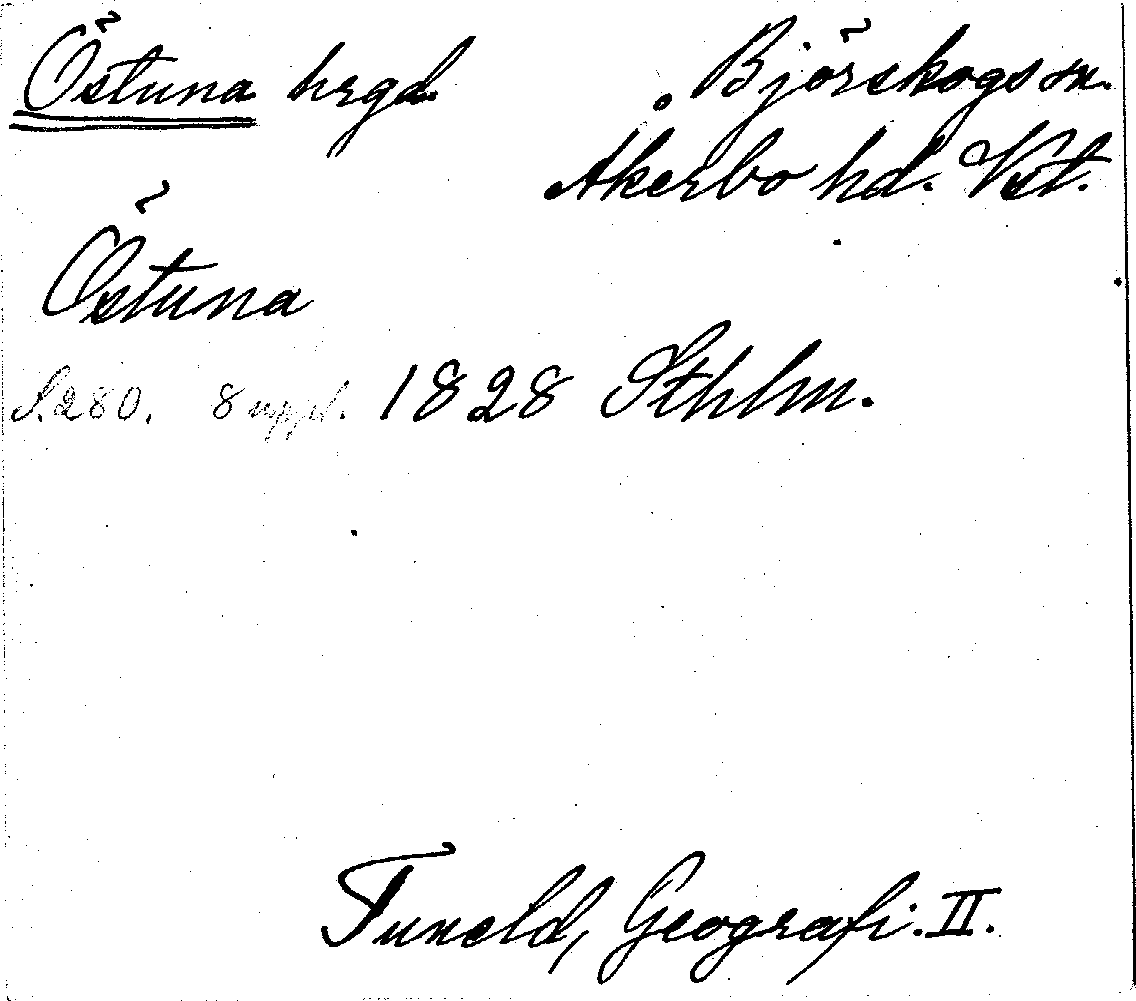 Östuna hrgd. Björskogs sn.
Åkerbo hd. Vst.
Östuna
S. 280. 8 uppl. 1828 Sthlm.
Tuneld, Geografi. II.